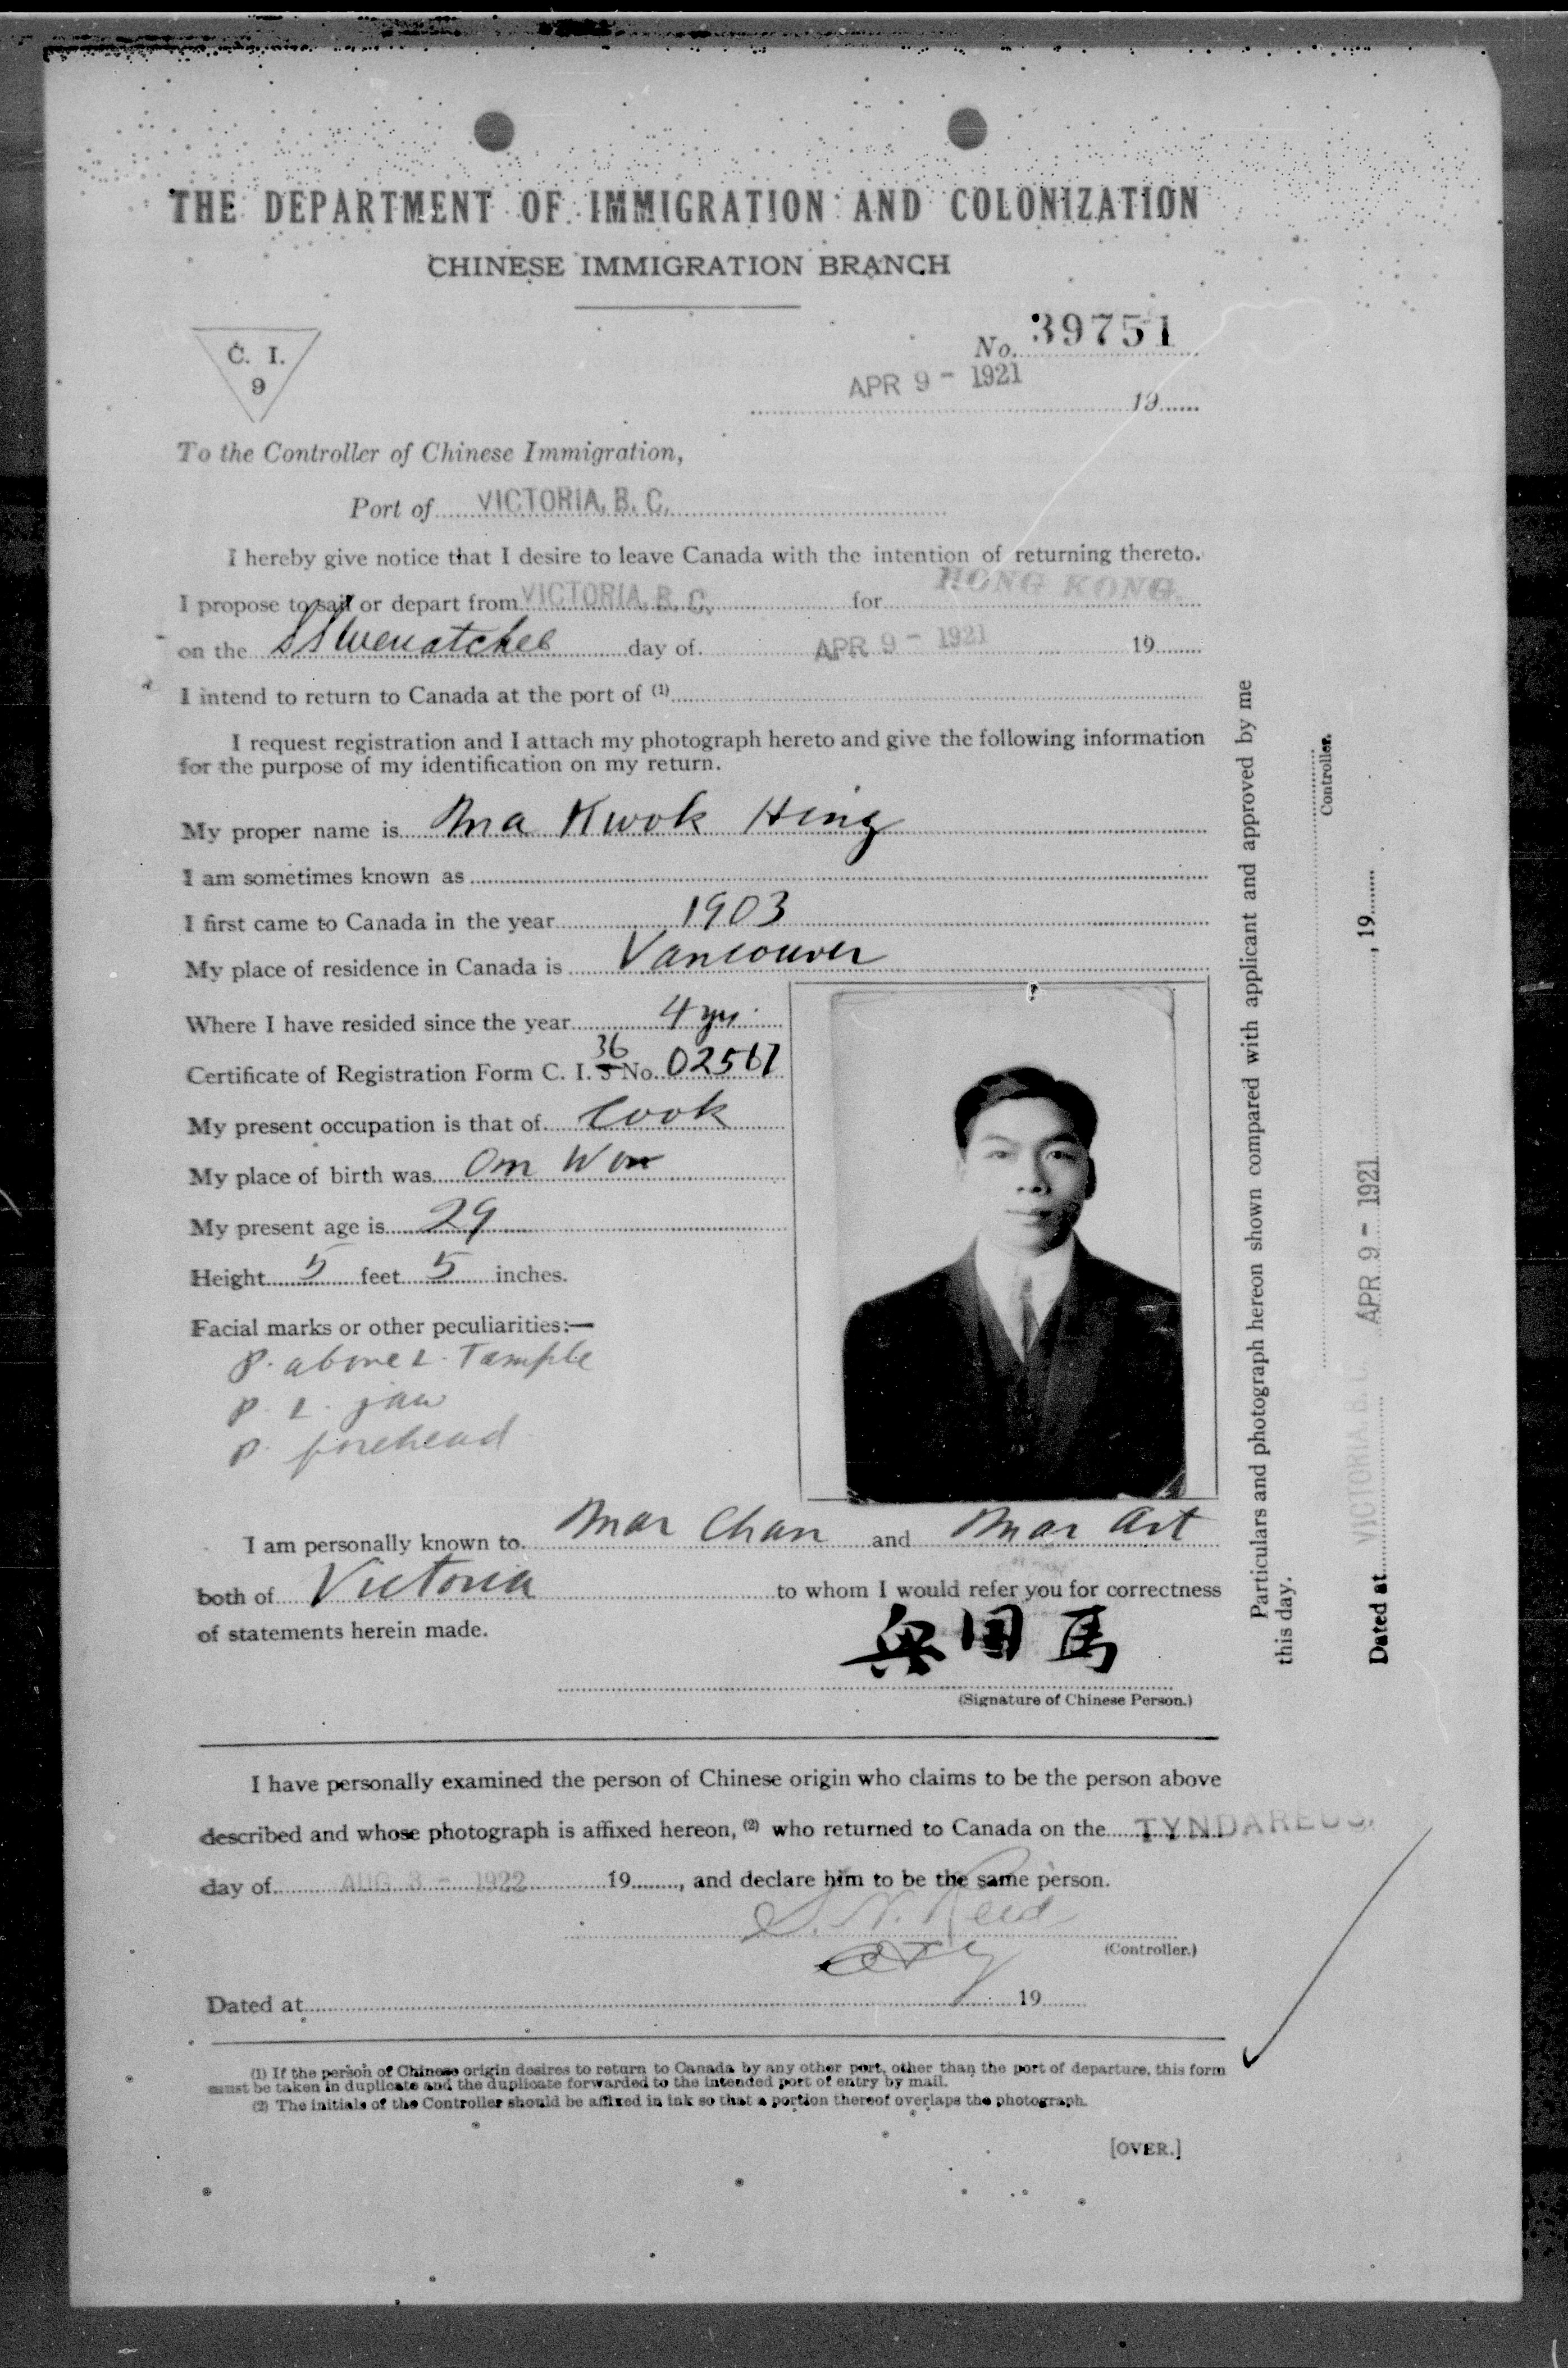 THE DEPARTMENT OF IMMIGRATION AND COLONIZATION
CHINESE IMMIGRATION BRANCH
C. I.
9
No. 39751
APR 9 - 1921 19
To the Controller of Chinese Immigration,
Port of VICTORIA, B. C.
I hereby give notice that I desire to leave Canada with the intention of returning thereto.
I propose to sail or depart from VICTORIA, B. C. for HONG KONG.
on the SS Wenatchee day of APR 9 - 1921 19
I intend to return to Canada at the port of (1)
I request registration and I attach my photograph hereto and give the following information
for the purpose of my identification on my return.
My proper name is Ma Kwok Hing
I am sometimes known as
I first came to Canada in the year 1903
My place of residence in Canada is Vancouver
Where I have resided since the year 4 yrs
36
Certificate of Registration Form C. I. 5 No. 02561
My present occupation is that of Cook
My place of birth was Om Won
My present age is 29
Height 5 feet 5 inches.
Facial marks or other peculiarities:—
P. above L. Temple
P. L. jaw
P. forehead
I am personally known to Mar Chan and Mar Art
both of Victoria to whom I would refer you for correctness
of statements herein made.
馬国興
(Signature of Chinese Person.)
I have personally examined the person of Chinese origin who claims to be the person above
described and whose photograph is affixed hereon, (2) who returned to Canada on the TYNDAREUS.
day of AUG 3 - 1922 19, and declare him to be the same person.
S. N. Reid
(Controller.)
Dated at 19
(1) If the person of Chinese origin desires to return to Canada by any other port, other than the port of departure, this form
must be taken in duplicate and the duplicate forwarded to the intended port of entry by mail.
(2) The initials of the Controller should be affixed in ink so that a portion thereof overlaps the photograph.
[OVER.]
Particulars and photograph hereon shown compared with applicant and approved by me
this day.
Controller.
Dated at VICTORIA, B. C. APR 9 - 1921, 19